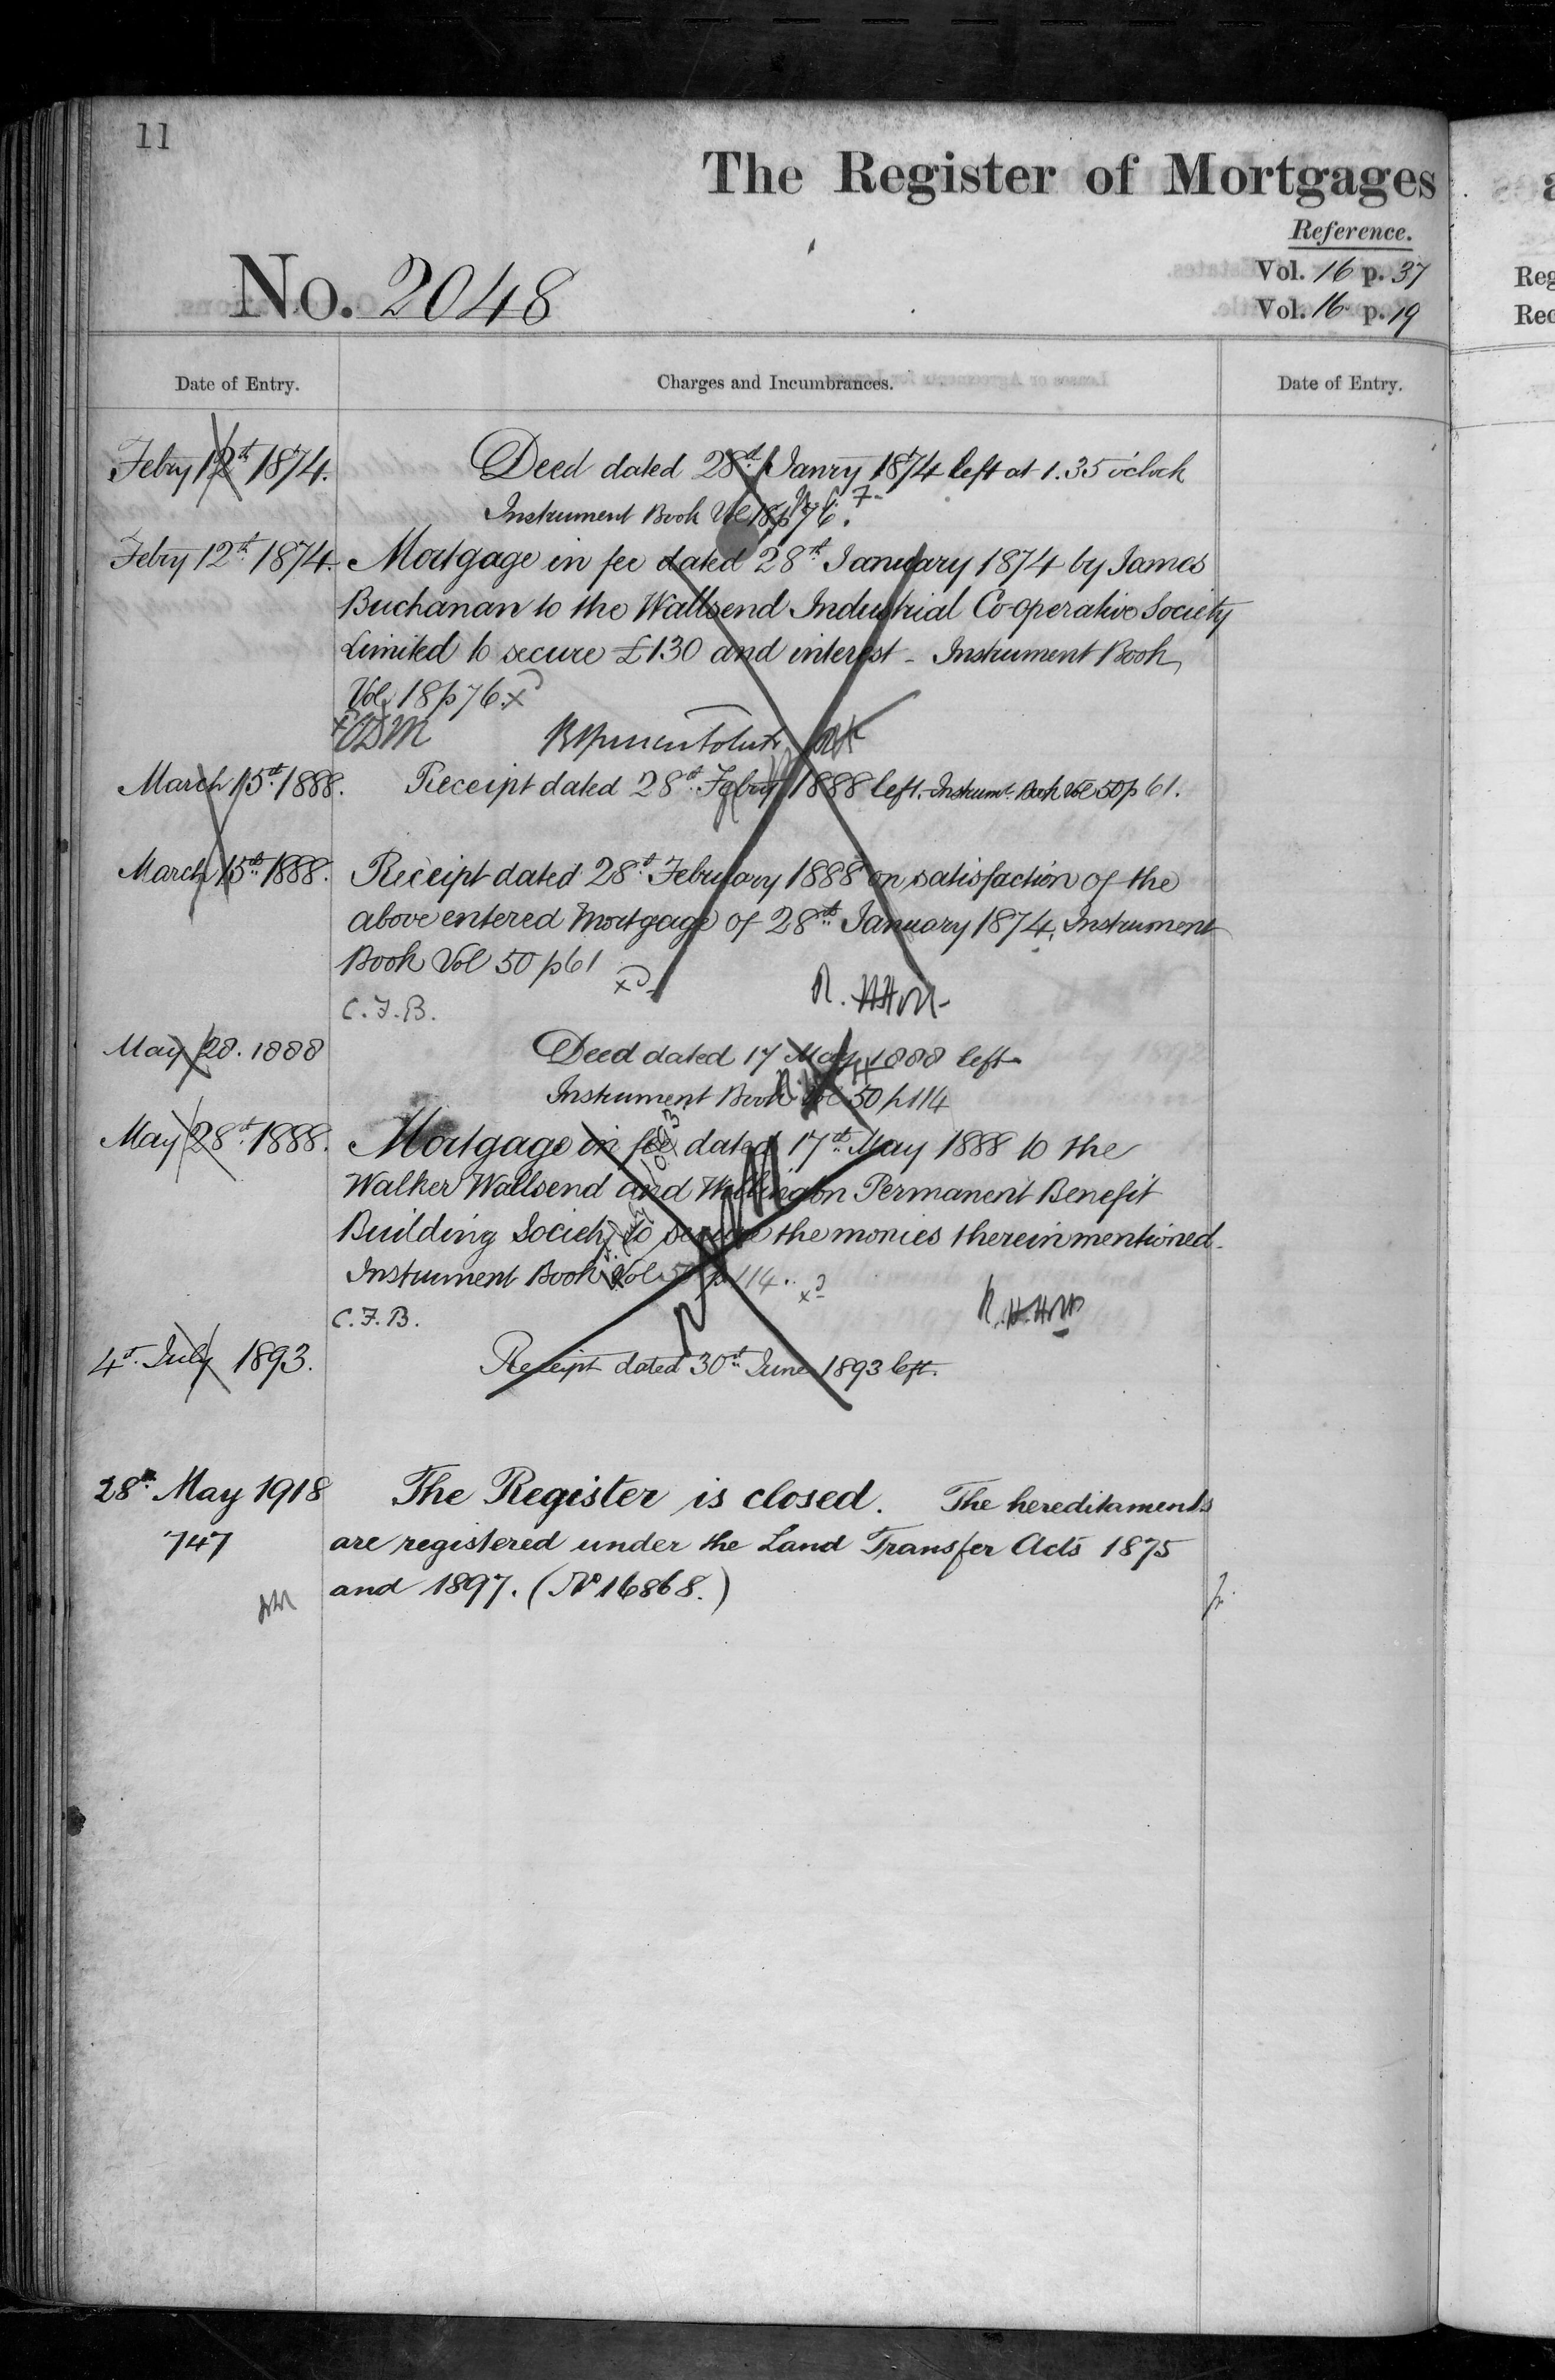 11
The Register of Mortgages
Reference.
No. 2048
Vol. 16 p. 37
Vol. 16 p. 19
Date of Entry.
Charges and Incumbrances.
Date of Entry.
Febry 12th 1874.
Deed dated 28th Janry 1874 left at 1.35 o'clock
Instrument Book Vol 18 p 76.
Febry 12th 1874.
Mortgage in fee dated 28th January 1874 by James
Buchanan to the Wallsend Industrial Co-operative Society
Limited to secure £130 and interest - Instrument Book
Vol 18 p 76. x
March 15th 1888.
Receipt dated 28th Febry 1888 left. Instrumt Book Vol 50 p 61.
March 15th 1888.
Receipt dated 28th February 1888 on satisfaction of the
above entered Mortgage of 28th January 1874, Instrument
Book Vol 50 p 61
C.F.B.
May 28. 1888
Deed dated 17 May 1888 left
Instrument Book Vol 50 p 114
May 28th 1888.
Mortgage in fee dated 17th May 1888 to the
Walker Wallsend and Willington Permanent Benefit
Building Society to secure the monies therein mentioned.
Instrument Book Vol 50 p 114.
C.F.B.
4th July 1893.
Receipt dated 30th June 1893 left.
28th May 1918
The Register is closed. The hereditaments
747
are registered under the Land Transfer Acts 1875
and 1897. (No 16868.)
Reg
Rec